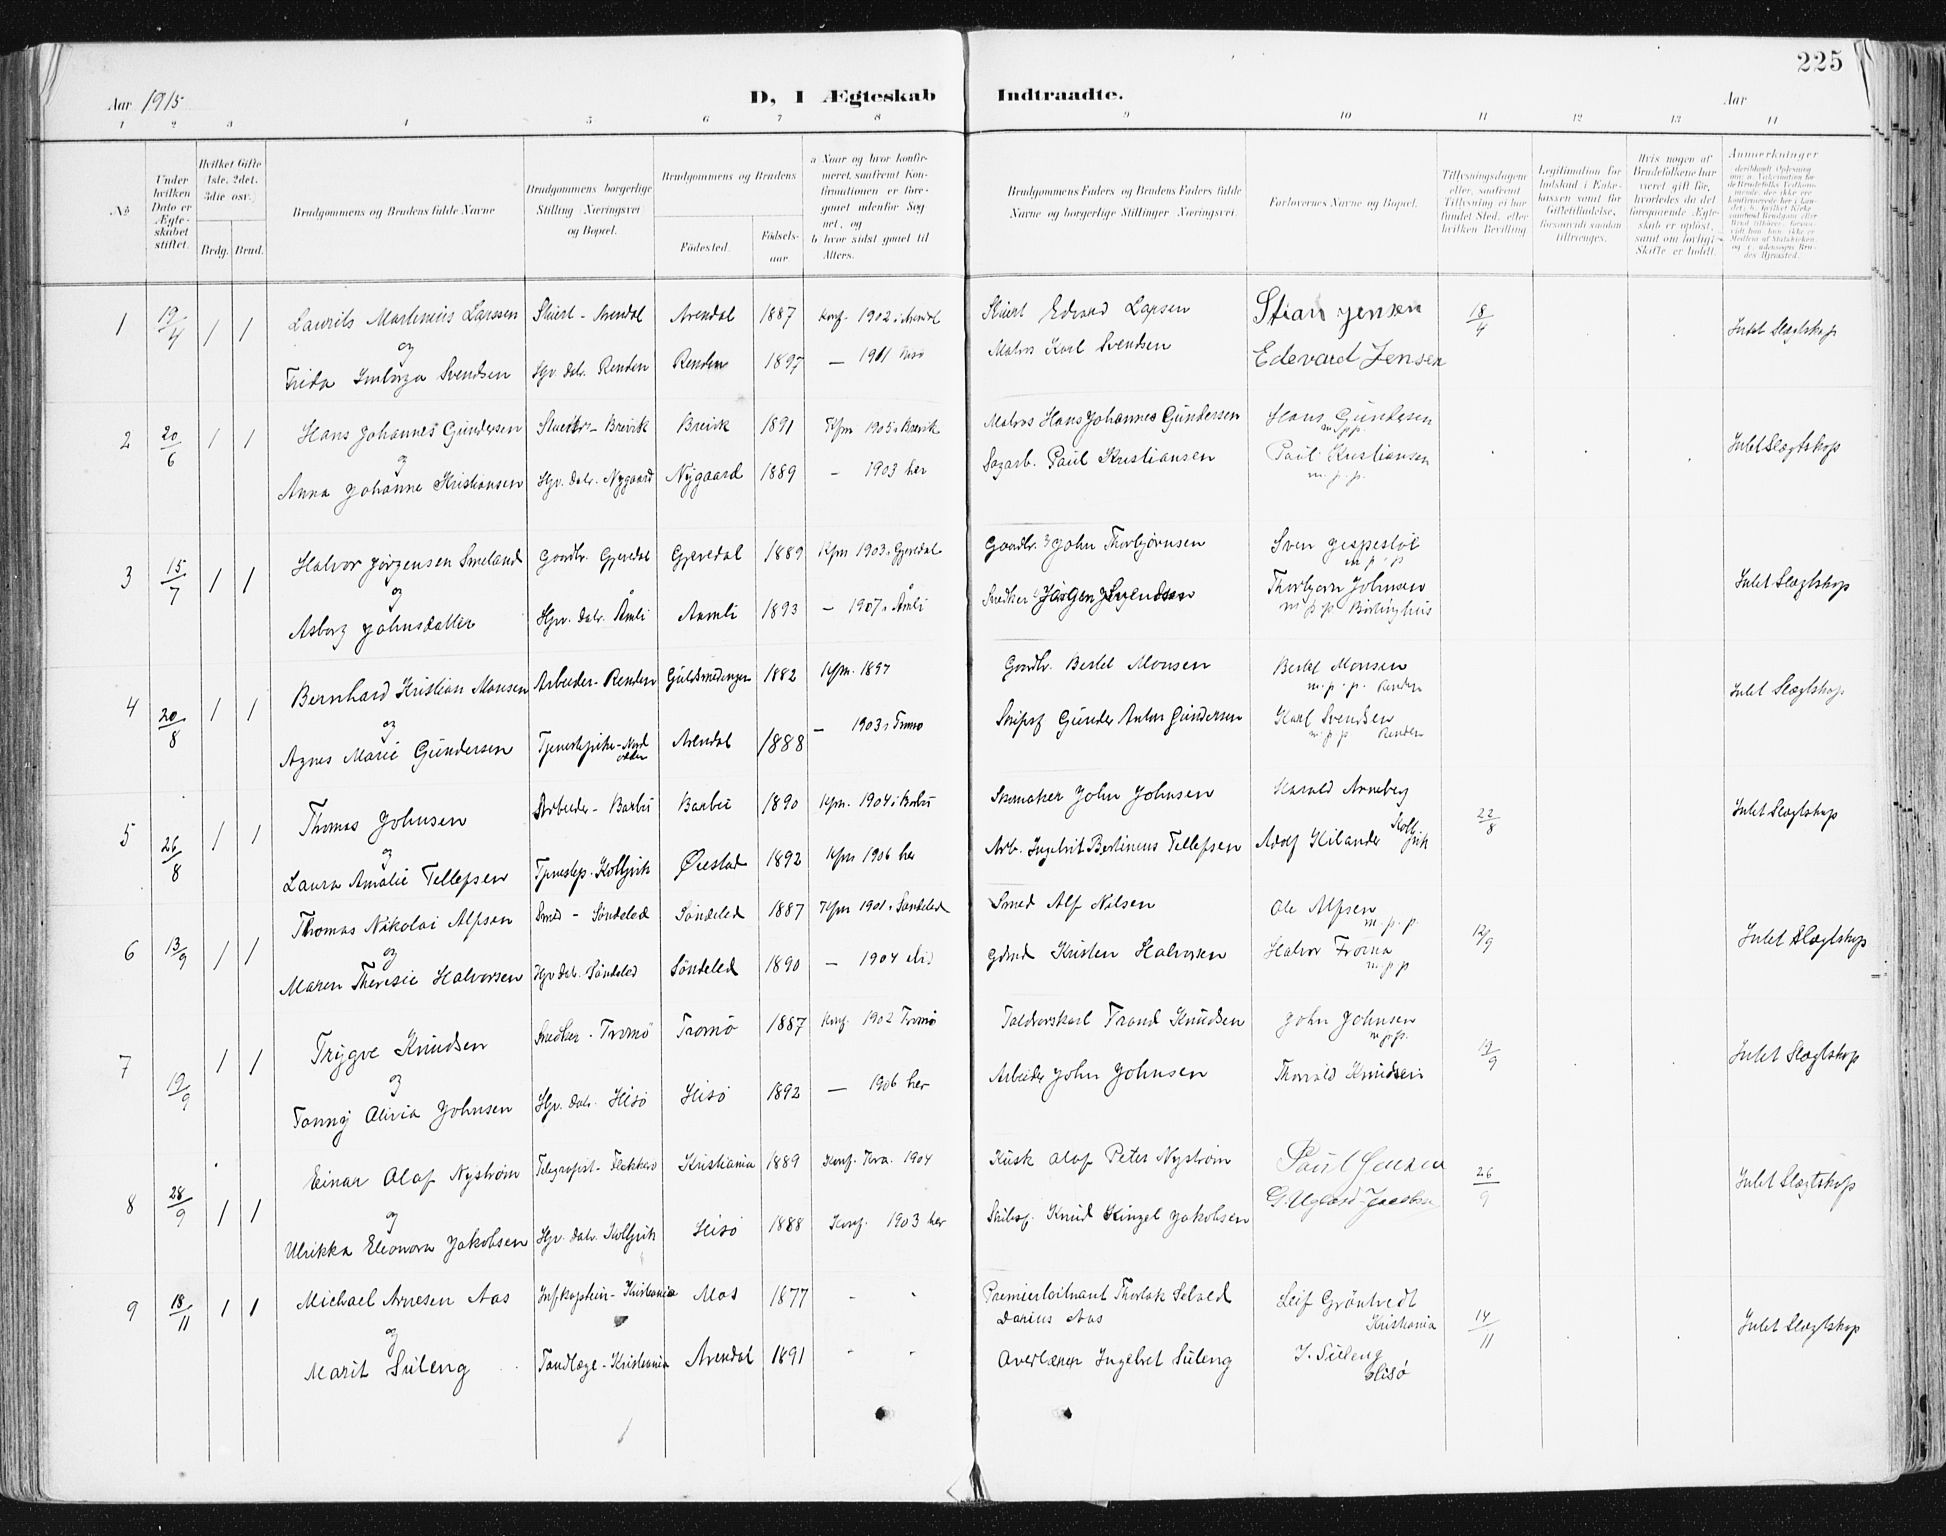 225
Aar 1915 D, I Ægteskab Indtraadte. Aar
1 2 3 4 5 6 7 8 9 10 11 12 13 14
No
Under hvilken Dato er Ægteskabet stiftet.
Hvilket Gifte 1ste, 2det, 3die osv.)
Brdg. Brud.
Brudgommens og Brudens fulde Navne
Brudgommens borgerlige Stilling (Næringsvei) og Bopæl.
Brudgommens og Brudens
Fødested. Fødselsaar.
a Naar og hvor konfirmeret, samfremt Konfirmationen er foregaaet udenfor Sognet, og
b hvor sidst gaaet til Alters.
Brudgommens Faders og Brudens Faders fulde Navne og borgerlige Stillinger (Næringsvei).
Forlovernes Navne og Bopæl.
Tillysningsdagene eller, saafremt Tillysning ei har fundet Sted, efter hvilken Bevilling
Legitimation for Indskud i Enkekassen samt for Giftetilladelse, forsaavidt saadan tiltrænges.
Hvis nogen af Brudefolkene har været gift før, hvorledes da det foregaaende Ægteskab er opløst, samt om lovligt Skifte er holdt.
Anmerkninger
1 19/4 1 1 Laurits Martinius Larssen Stuert - Arendal Arendal 1887 Konf. 1902 i Arendal Stuert Edvard Larsen Stian Jensen 18/4 Intet Slægtskap
og
Frida Imborga Svendsen Hjv. datr. Renden Renden 1897 — 1911 Matros Karl Svendsen Edevard Jensen
2 20/6 1 1 Hans Johannes Gundersen Stuert - Brevik Brevik 1891 Kfm 1905 i Brevik Matros Hans Johannes Gundersen Hans Gundersen m.p.p. Intet Slægtskap
og
Anna Johanne Kristiansen Hjv. datr. Nygaard Nygaard 1889 - 1903 her Sagarb. Paul Kristiansen Paul Kristiansen m.p.p.
3 15/7 1 1 Halvor Jørgensen Smeland Gaardbr. Gjevedal Gjevedal 1889 Kfm 1903 i Gjevedal Gaardbr. John Thorbjørnsen Sven m.p.p Intet Slægtskap
og
Asborg Johnsdatter Hjv. datr. Åmli Aamli 1893 — 1907 i Åmli Snedker Jørgen Svendsen Thorbjørn Johnsen m.p.p.
4 20/8 1 1 Bernhard Kristian Monsen Arbeider - Renden Guldsmedengen 1882 Kfm. 1897 Gaardbr. Bertel Monsen Bertel Monsen m.p.p. Renden Intet Slægtskap
og
Agnes Marie Gundersen Tjenestepike - Arendal 1888 — 1903 i Tromø Skipsf Gunder Anton Gundersen Karl Svendsen m.p.p Renden
5 26/8 1 1 Thomas Johnsen Arbeider - Barbu Barbu 1890 Kfm. 1904 i Barbu Skomaker John Johnsen Harald Arneberg 22/8 Intet Slægtskap
og
Laura Amalie Tellefsen Tjenestep. Kolbjvik Øiestad 1892 Kfm 1906 her Arb. Ingebrit Bertinius Tellefsen Adolf Kilander Kolbjvik
6 13/9 1 1 Thomas Nikolai Alfsen Smed - Søndeled Søndeled 1887 Kfm 1901 i Søndeled Smed Alf Nilsen Ole Alfsen m.p.p. 12/9 Intet Slægtskap
og
Maren Theresie Halvorsen Hjv datr. Søndeled Søndeled 1890 — 1904 Kristen Halvorsen Halvor Froina m.p.p
7 19/9 1 1 Trygve Knudsen Snedker - Tromø Tromø 1887 Konf. 1902 Tromø Toldvorskarl Trond Knudsen John Johnsen m.p.p. 19/9 Intet Slægtskap
og
Fanny Alivia Johnsen Hjv. datr. Hisø Hisø 1892 — 1906 her Arbeider John Johnsen Thorvald Knudsen
8 28/9 1 1 Einar Olaf Nystrøm Telegrafist - Flekkerø Kristiania 1889 Konf. Kra. 1904 Kusk Olaf Peter Nystrøm Paul Jensen 26/9 Intet Slægtskap
og
Ulrikka Eleonora Jakobsen Hjv. datr. Kolbjvik Hisø 1888 Konf. 1903 her Skibsf. Knud Kinzel Jakobsen
9 18/11 1 1 Michael Arnesen Aas Infkaptein - Kristiania Mos 1877 - - Premierløitnant Thorlak Selved Darius Aas Leif Grøntvedt Kristiania 14/11 Intet Slægtskap
og
Marit Suleng Tandlæge - Kristiania Arendal 1891 - - Overlærer Ingebret Suleng I. Suleng Hisø